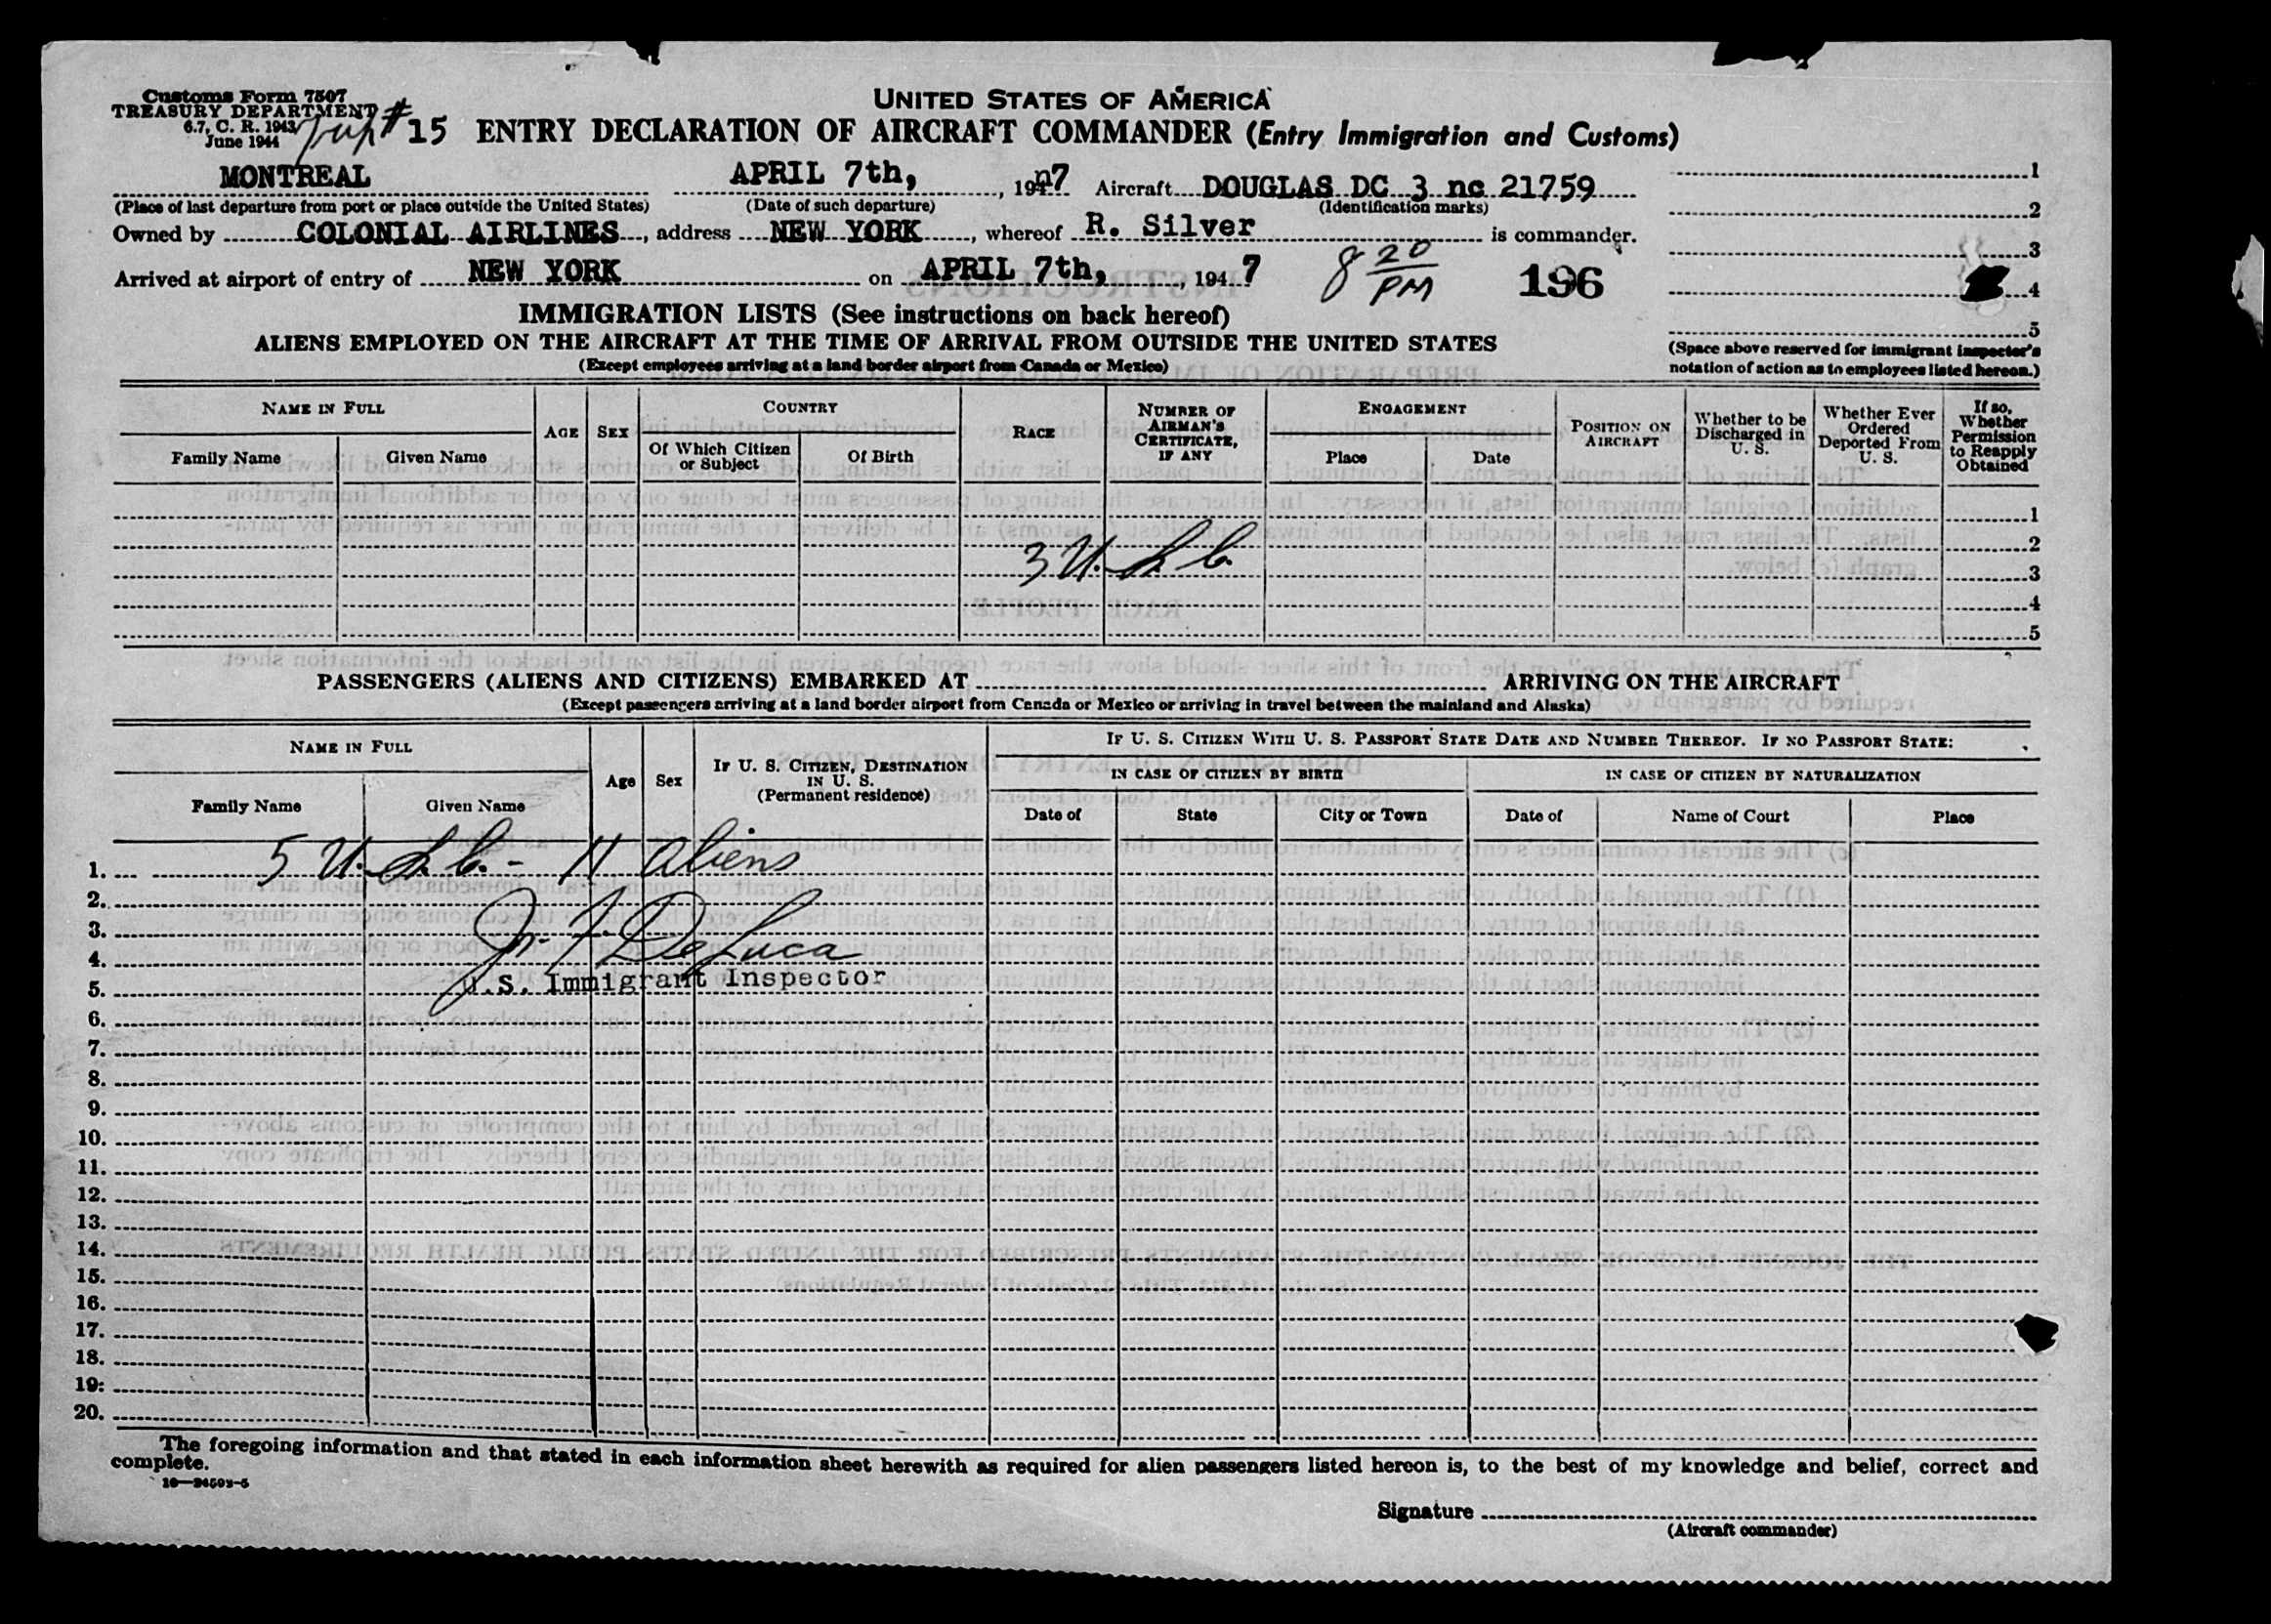 Customs Form 7507
TREASURY DEPARTMENT
6.7, C. R. 1943
June 1944
Trip # 15
UNITED STATES OF AMERICA
ENTRY DECLARATION OF AIRCRAFT COMMANDER (Entry Immigration and Customs)
MONTREAL APRIL 7th, , 1947 Aircraft DOUGLAS DC 3 nc 21759
(Place of last departure from port or place outside the United States) (Date of such departure) (Identification marks)
Owned by COLONIAL AIRLINES, address NEW YORK, whereof R. Silver is commander.
Arrived at airport of entry of NEW YORK on APRIL 7th, , 1947 8 20 PM 196
1
2
3
4
5
(Space above reserved for immigrant inspector's
notation of action as to employees listed hereon.)
IMMIGRATION LISTS (See instructions on back hereof)
ALIENS EMPLOYED ON THE AIRCRAFT AT THE TIME OF ARRIVAL FROM OUTSIDE THE UNITED STATES
(Except employees arriving at a land border airport from Canada or Mexico)
NAME IN FULL
Family Name
Given Name
AGE
SEX
COUNTRY
Of Which Citizen or Subject
Of Birth
RACE
NUMBER OF AIRMAN'S CERTIFICATE, IF ANY
ENGAGEMENT
Place
Date
POSITION ON AIRCRAFT
Whether to be Discharged in U. S.
Whether Ever Ordered Deported From U. S.
If so, Whether Permission to Reapply Obtained
1
2
3 U.S.C.
3
4
5
PASSENGERS (ALIENS AND CITIZENS) EMBARKED AT ARRIVING ON THE AIRCRAFT
(Except passengers arriving at a land border airport from Canada or Mexico or arriving in travel between the mainland and Alaska)
NAME IN FULL
Family Name
Given Name
Age
Sex
IF U. S. CITIZEN, DESTINATION IN U. S.
(Permanent residence)
IF U. S. CITIZEN WITH U. S. PASSPORT STATE DATE AND NUMBER THEREOF. IF NO PASSPORT STATE:
IN CASE OF CITIZEN BY BIRTH
Date of
State
City or Town
IN CASE OF CITIZEN BY NATURALIZATION
Date of
Name of Court
Place
1. 5 U.S.C. - 11 Aliens
2.
3.
4. DeLuca
5. U.S. Immigrant Inspector
6.
7.
8.
9.
10.
11.
12.
13.
14.
15.
16.
17.
18.
19.
20.
The foregoing information and that stated in each information sheet herewith as required for alien passengers listed hereon is, to the best of my knowledge and belief, correct and
complete.
Signature
(Aircraft commander)